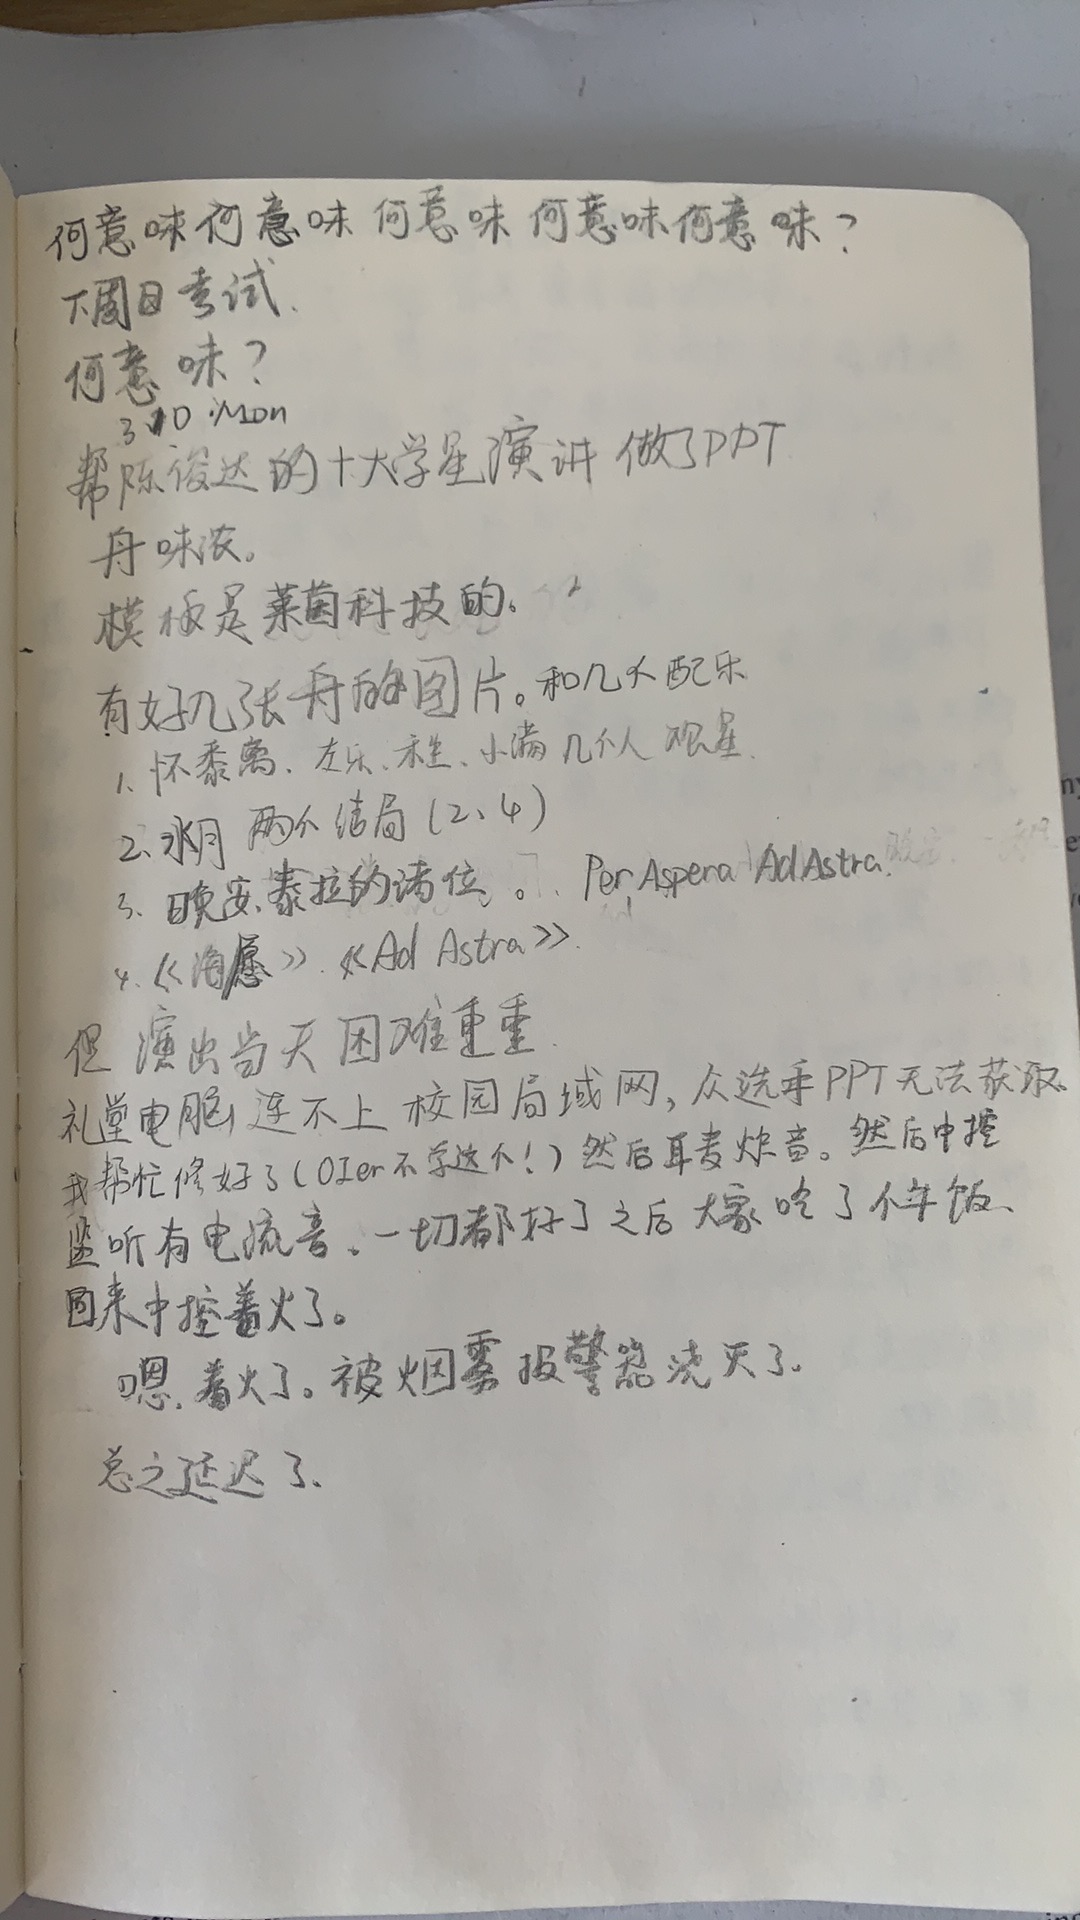 何意味何意味何意味何意味何意味？
下周日考试.
何意味？
310 Mon
帮陈俊达的十大学星演讲做了PPT
舟味浓。
模板是莱茵科技的。
有好几张舟的图片。和几个配乐
1. 怀黍离、左乐、禾生、小满几个人观星.
2. 水月 两个结局(2、4)
3. 晚安、泰拉的诸位。. Per Aspera Ad Astra.
4. 《海愿》.《Ad Astra》.
但演出当天困难重重.
礼堂电脑连不上校园局域网，众选手PPT无法获取.
我帮忙修好了(OIer不学这个！)然后耳麦炸音。然后中控
监听有电流音。一切都好了之后大家吃了个午饭、
回来中控着火了。
嗯.着火了。被烟雾报警器浇灭了.
总之延迟了.